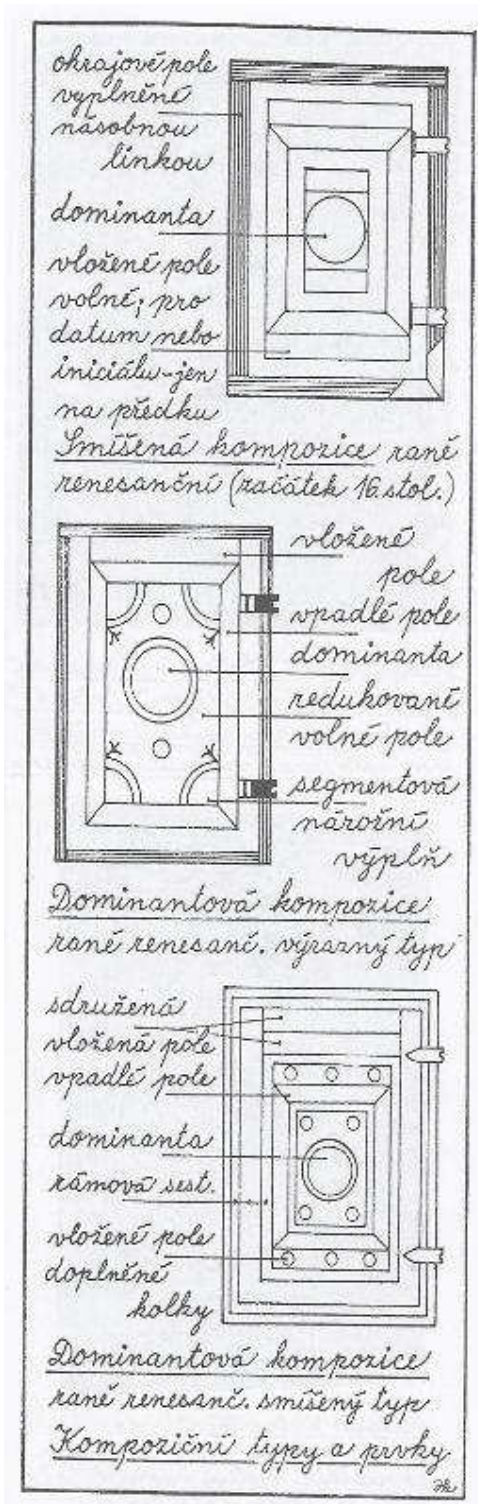 okrajové pole
vyplněné
násobnou
linkou
dominanta
vložené pole
volné; pro
datum nebo
iniciálu-jen
na předku
Smíšená kompozice raně
renesanční (začátek 16. stol.)
vložené
pole
vpadlé pole
dominanta
redukované
volné pole
segmentová
nárožní
výplň
Dominantová kompozice
raně renesanč. výrazný typ
sdružená
vložená pole
vpadlé pole
dominanta
rámová sest.
vložené pole
doplněné
kolky
Dominantová kompozice
raně renesanč. smíšený typ
Kompoziční typy a prvky